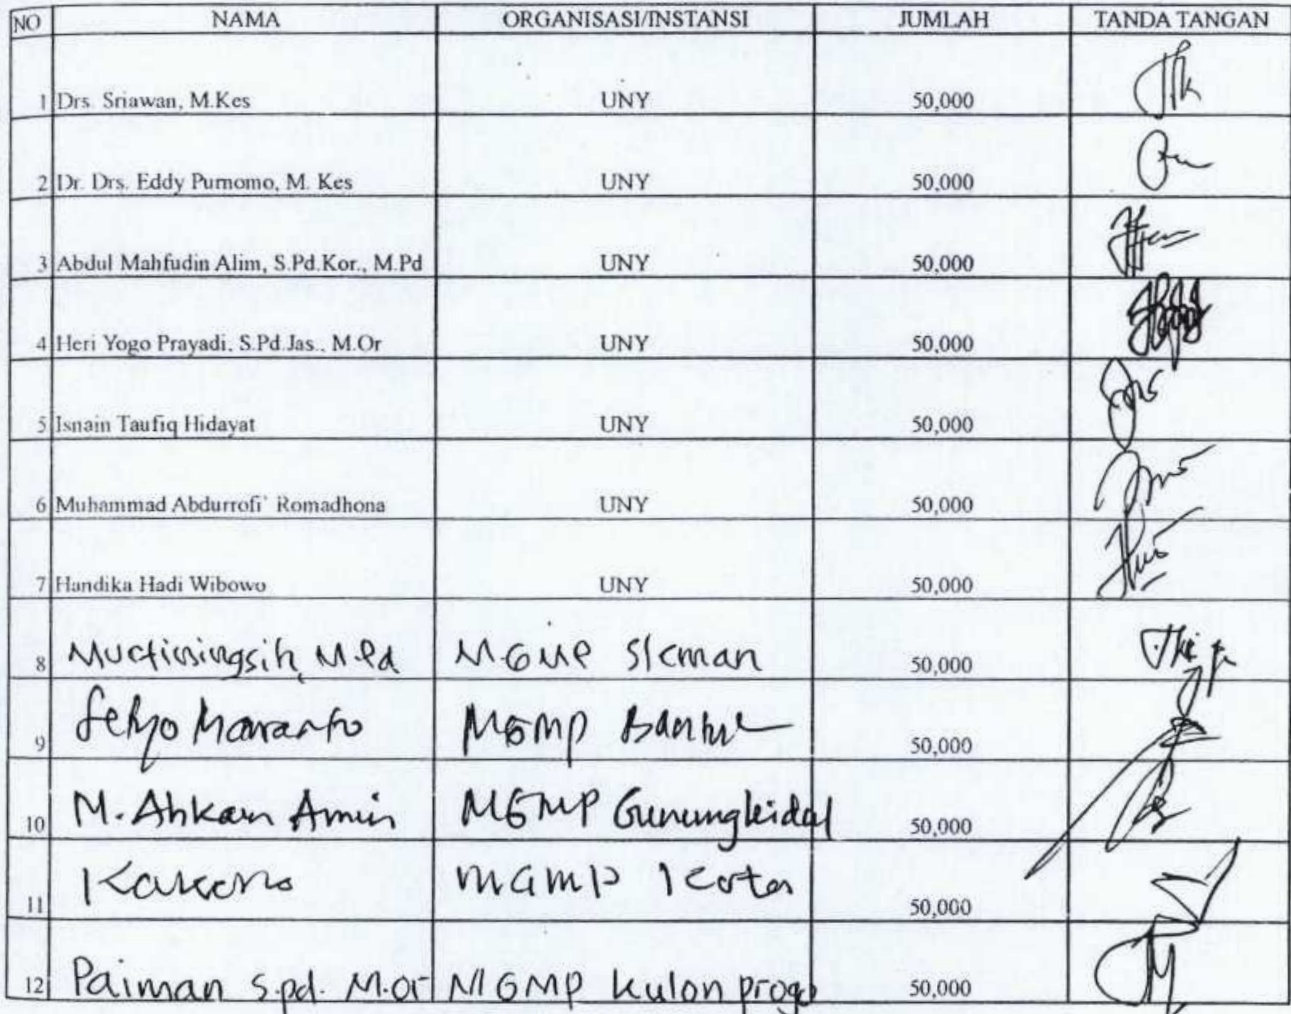 NO NAMA ORGANISASI/INSTANSI JUMLAH TANDA TANGAN
1 Drs. Sriawan, M.Kes UNY 50,000
2 Dr. Drs. Eddy Purnomo, M. Kes UNY 50,000
3 Abdul Mahfudin Alim, S.Pd.Kor., M.Pd UNY 50,000
4 Heri Yogo Prayadi, S.Pd.Jas., M.Or UNY 50,000
5 Isnain Taufiq Hidayat UNY 50,000
6 Muhammad Abdurrofi` Romadhona UNY 50,000
7 Handika Hadi Wibowo UNY 50,000
8 M.Pd MGMP Sleman 50,000
9 MGMP Bantul 50,000
10 M. Ahkam Amin MGMP Gunungkidul 50,000
11 MGMP Kota 50,000
12 Paiman S.pd. M.or MGMP kulon progo 50,000